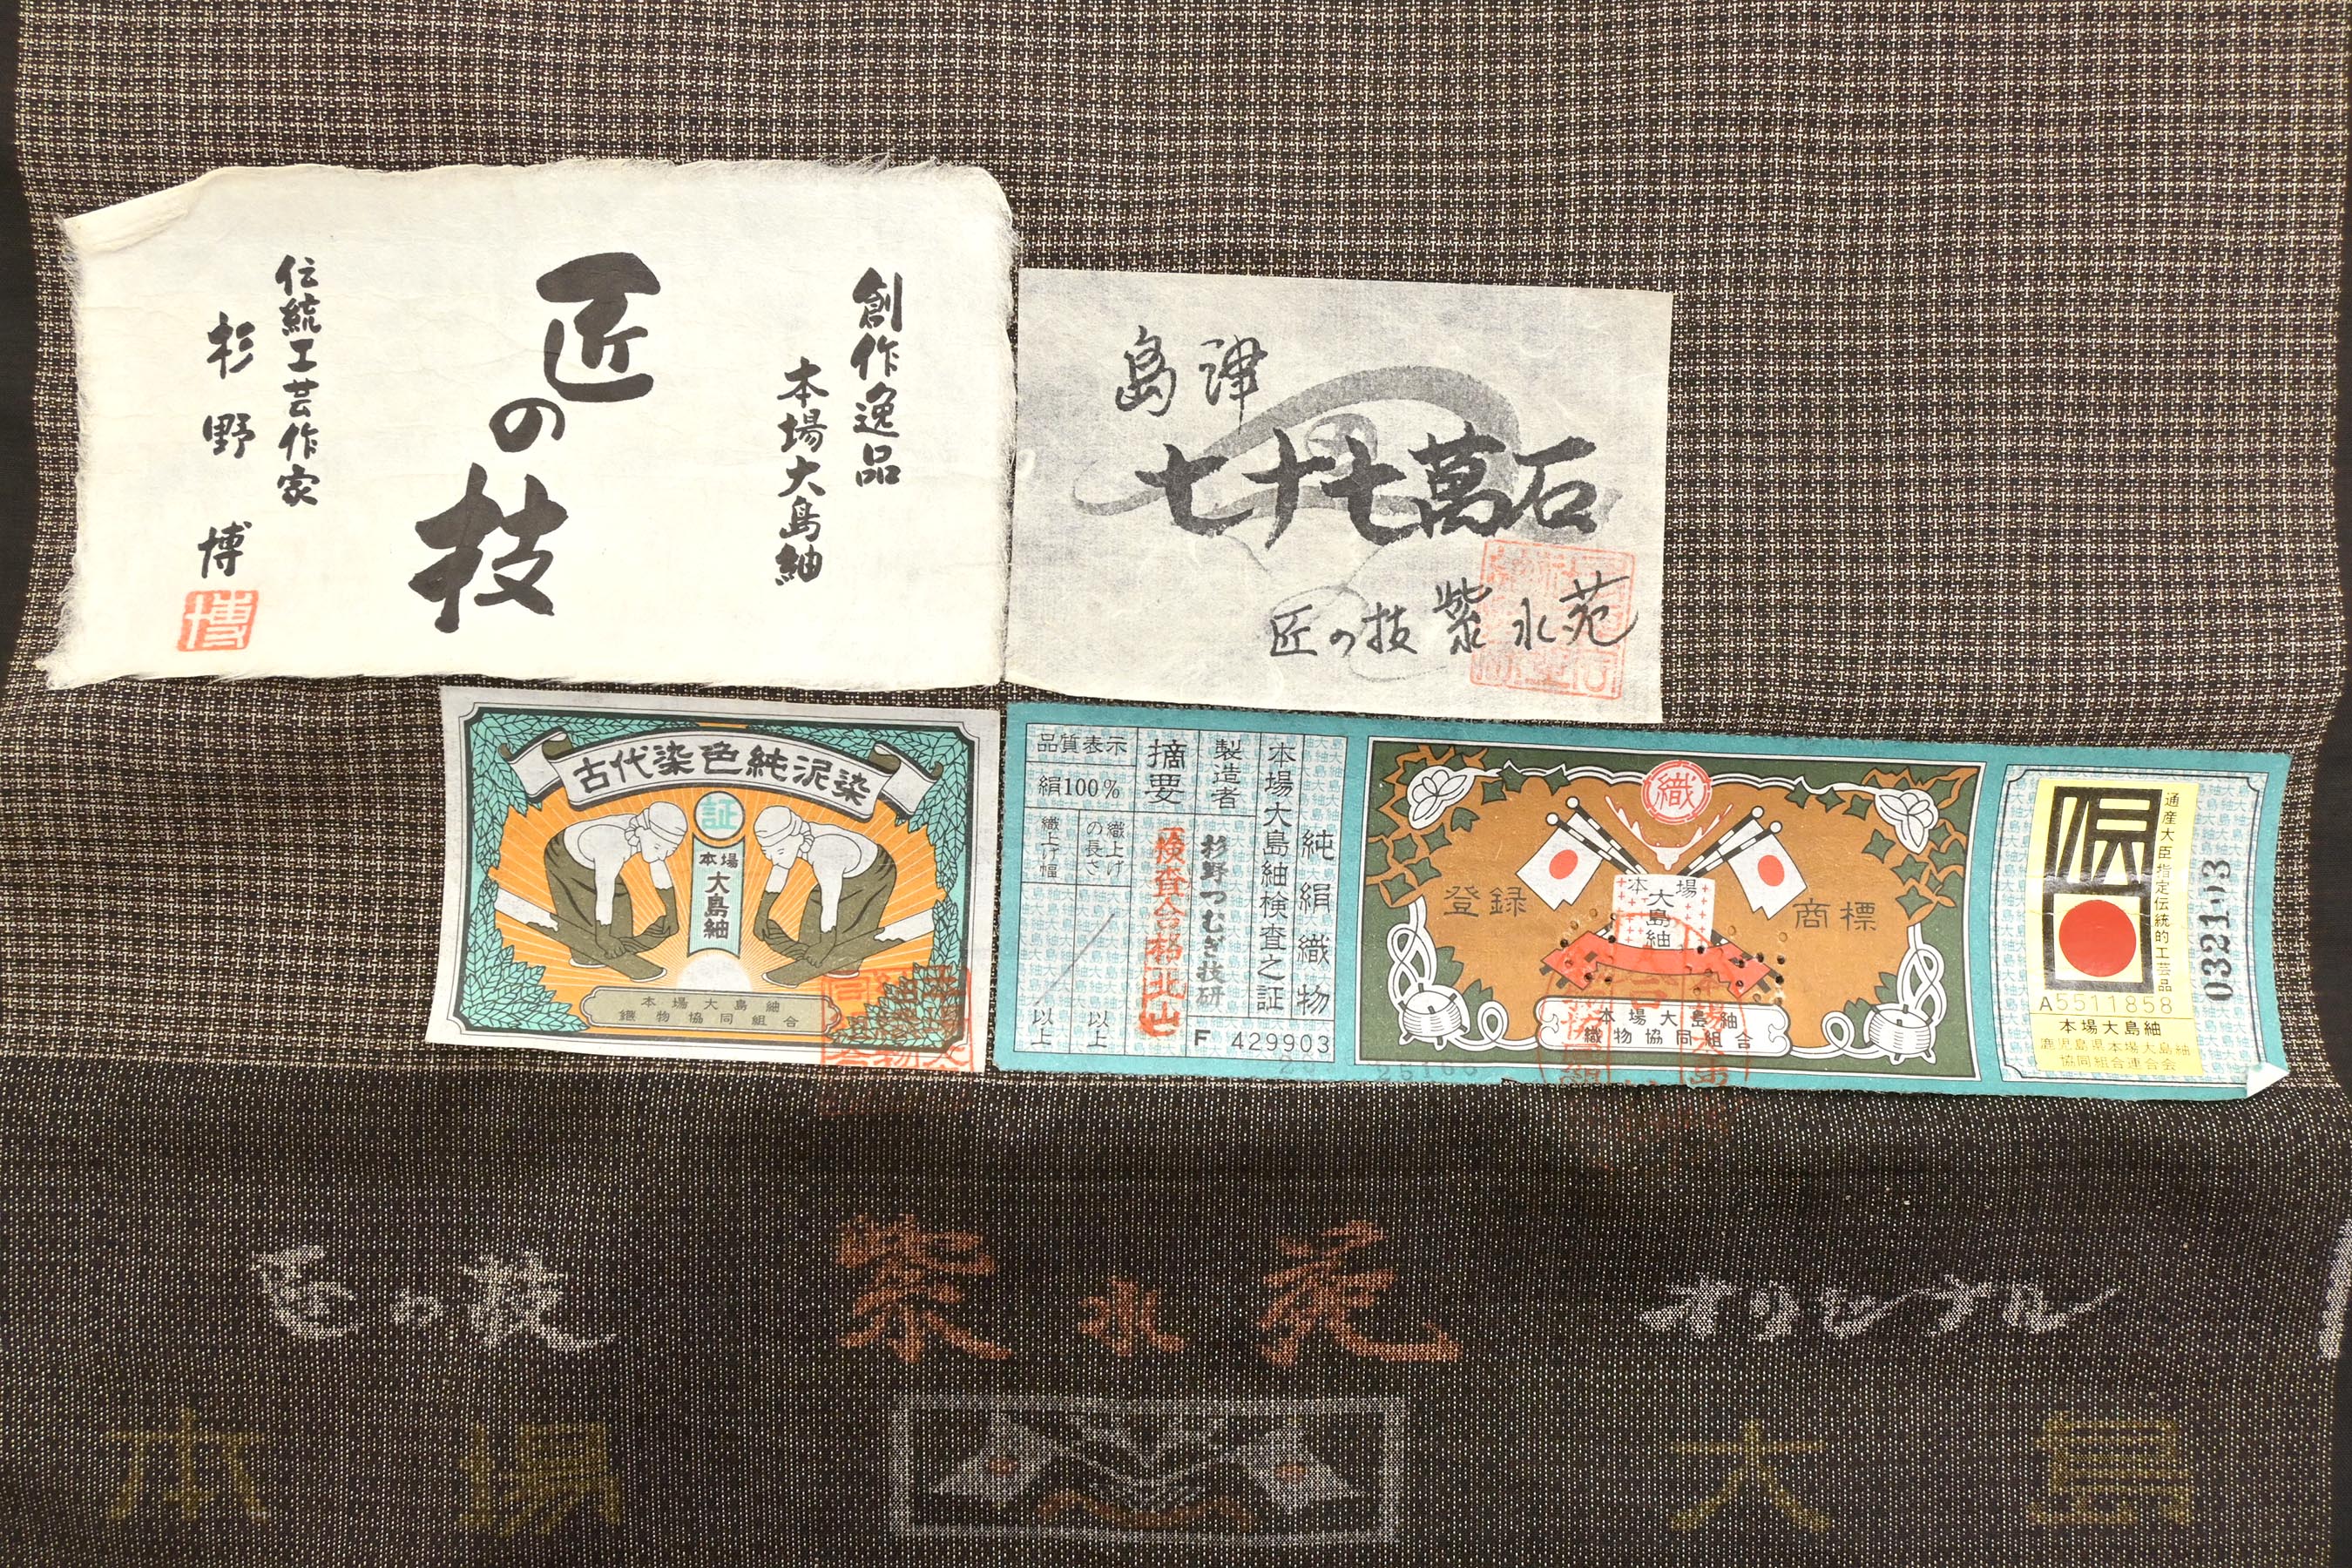 創作逸品
本場大島紬
匠の技
伝統工芸作家
杉野博
博
島津
七十七萬石
匠の技 紫水苑
古代染色純泥染
証
本場
大島紬
本場大島紬
織物協同組合
純絹織物
本場大島紬検査之証
製造者
杉野つむぎ技研
摘要
検査合格北山
品質表示
絹100%
織上げの長さ
以上
織上げ幅
以上
F 429903
織
登録
商標
本場
大島紬
本場大島紬
織物協同組合
伝
通産大臣指定伝統的工芸品
A5511858
本場大島紬
鹿児島県本場大島紬
協同組合連合会
032103
匠の技 紫水苑 オリジナル
本場 大島